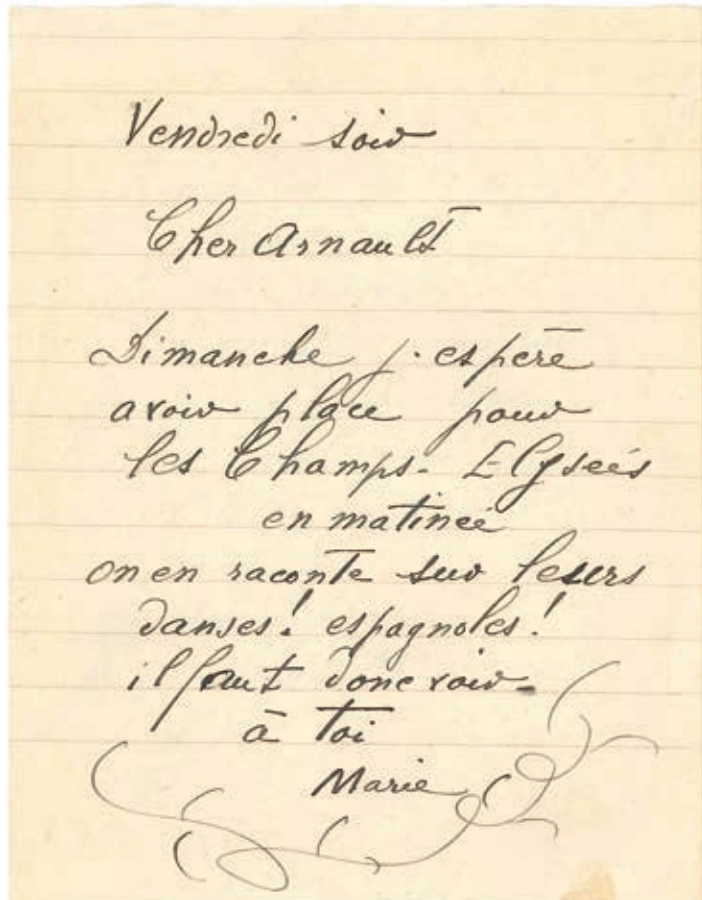 Vendredi soir
Cher Arnault
Dimanche j'espère
avoir place pour
les Champs-Elyseés
en matineé
on en raconte sur leurs
danses! espagnoles!
il faut donc voir-
à toi
Marie